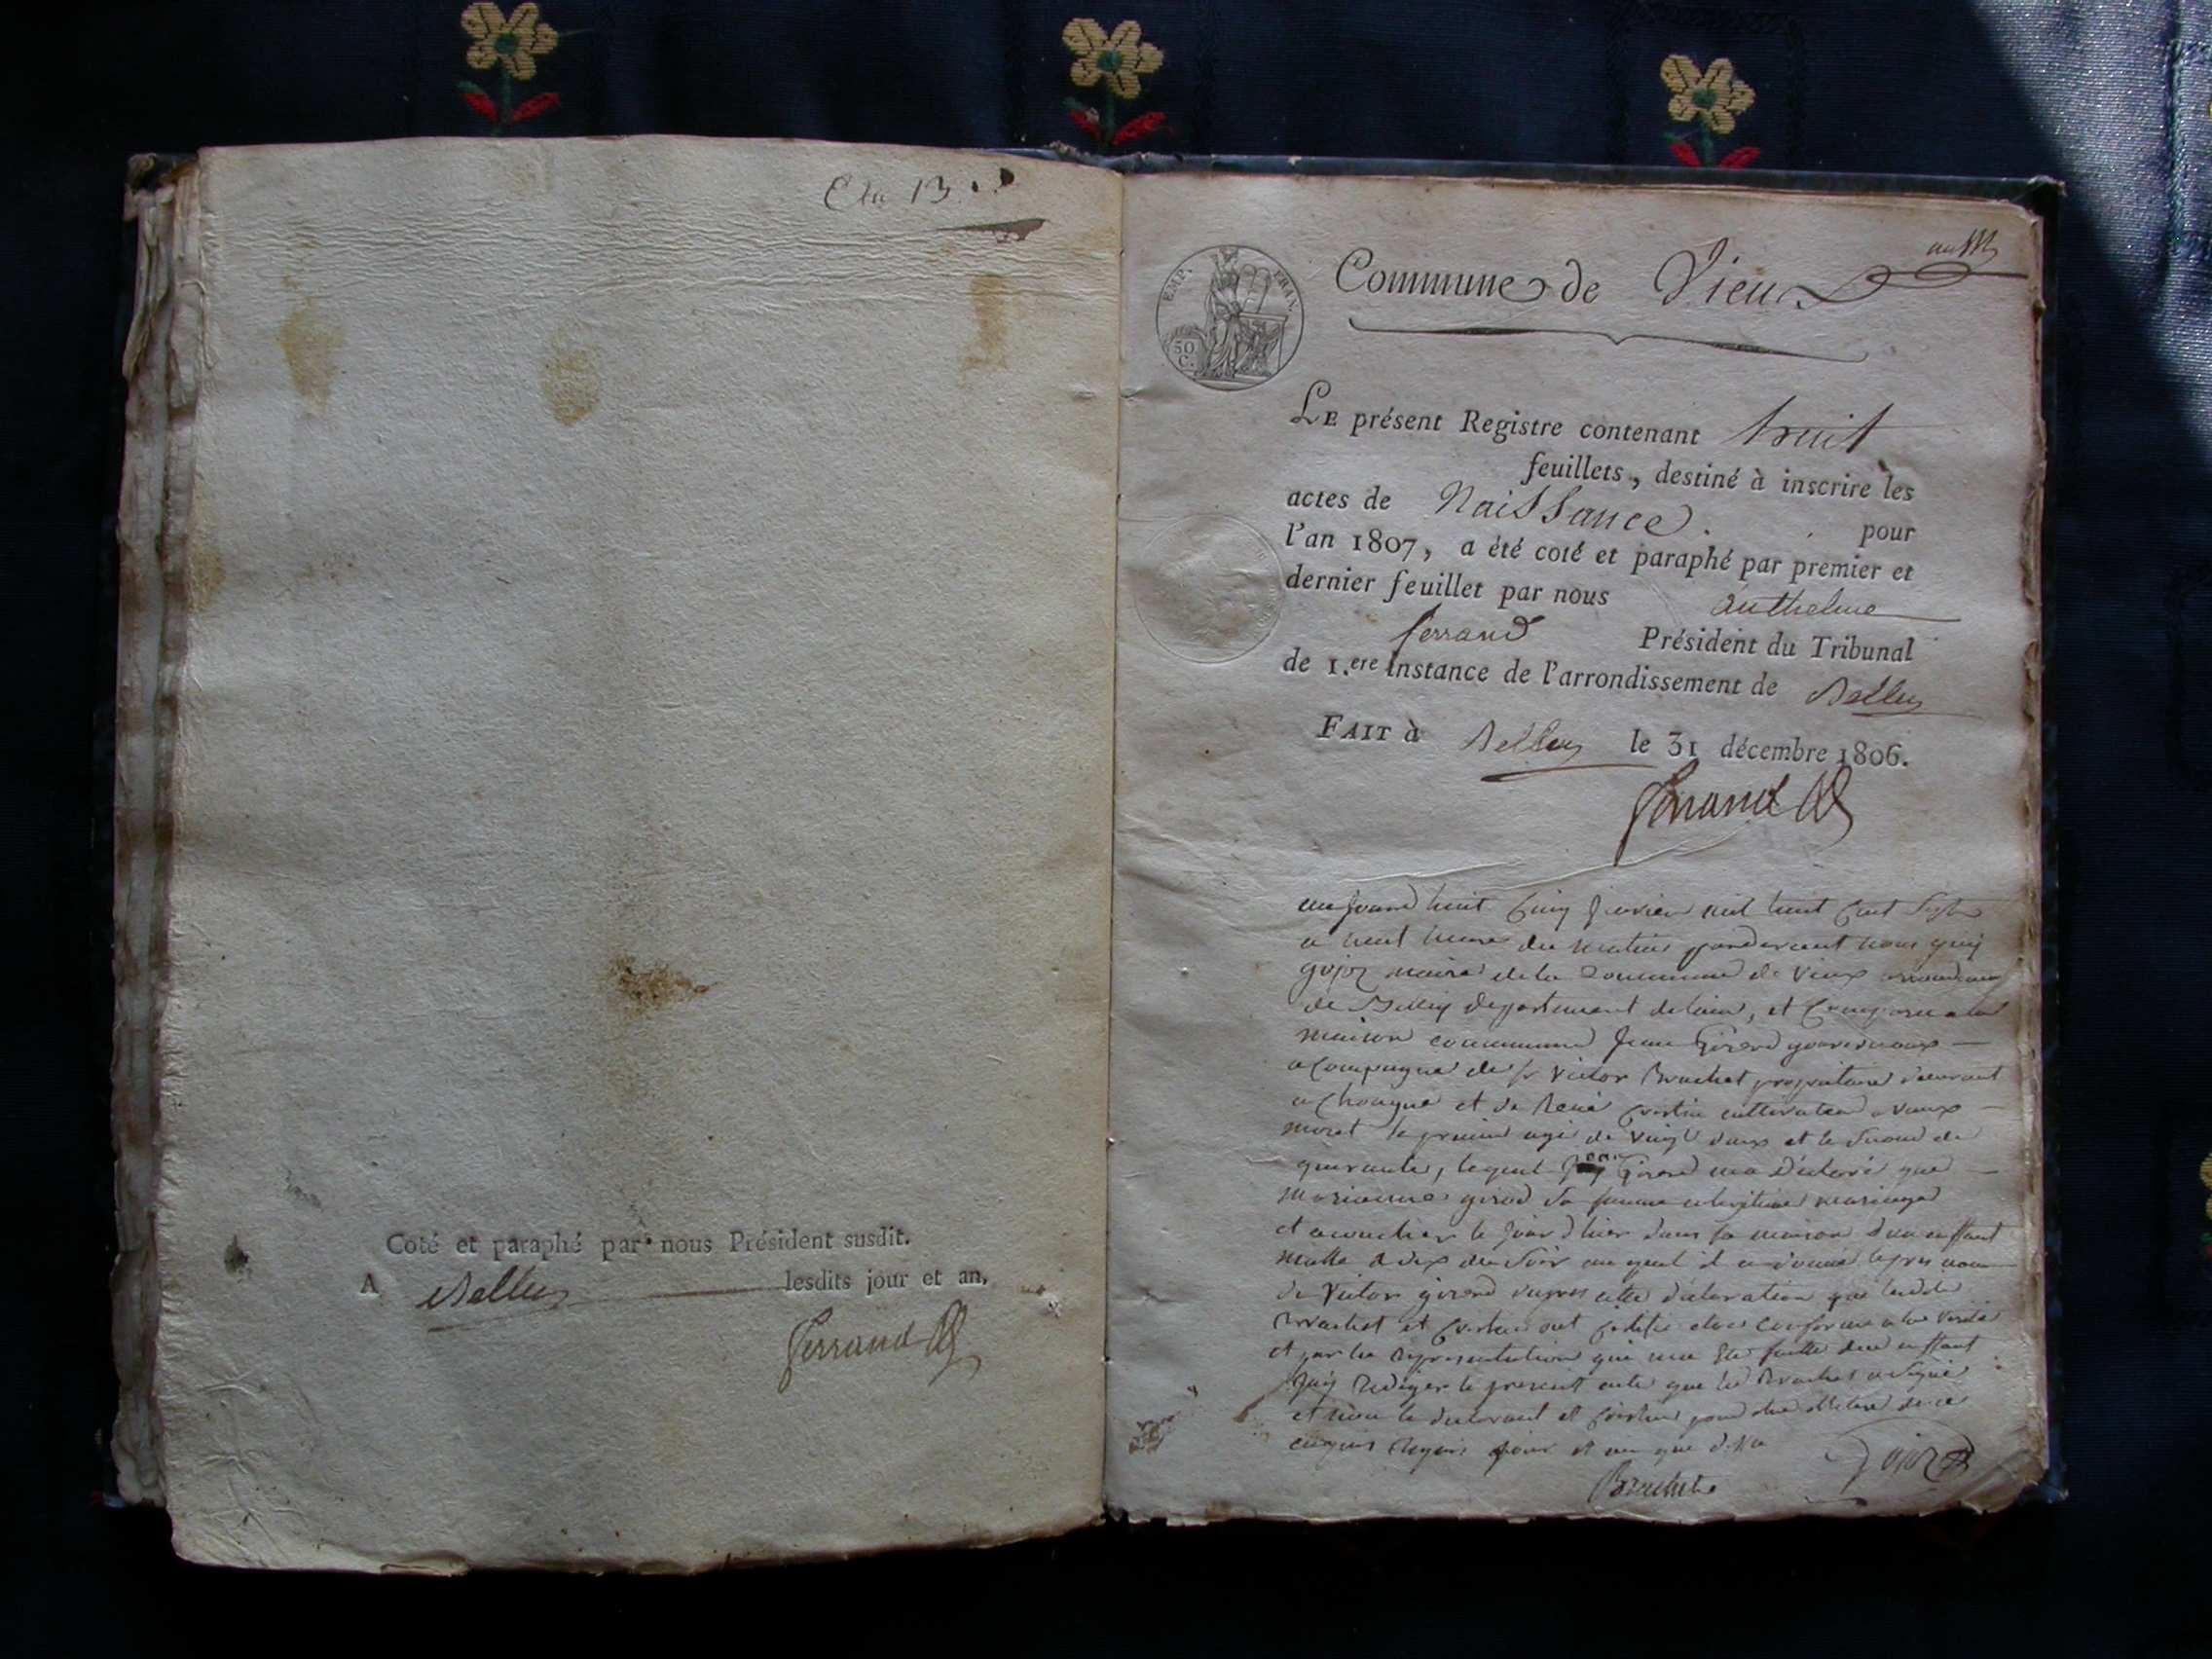 13
Coté et paraphé par nous Président susdit.
A Belley lesdits jour et an.
Ferrand
EMP. FRAN.
50 C.
Commune de Vieu
LE présent Registre contenant huit
feuillets, destiné à inscrire les
actes de Naissance. pour
l'an 1807, a été coté et paraphé par premier et
dernier feuillet par nous Anthelme
ferrand Président du Tribunal
de 1.ere Instance de l'arrondissement de Belley
FAIT à Belley le 31 décembre 1806.
Ferrand
aujourd huit cinq janvier mil huit cent sept
a neuf heure du matin pardevant nous
gojoz maire de la Commune de Vieux
de Belley departement de lain, et
maison commune Jean Girerd
acompagné de sr Victor Brachet propriétaire demeurant
a Chongne et de René cultivateur a vaux
moret le premier agé de vingt deux et le second de
quarante, lequel Jean Girerd ma déclaré que
marianne girod sa femme en legitime mariage
et acouchée le jour d hier dans sa maison d un enffant
malle a dix du soir au quel il a donné le prenom
de Victor girerd dapres cette déclaration que
Brachet et ont certifié etre conforme a la verité
et par la representation qui ma été faitte de enffant
Jay Rediger le present acte que le Brachet a signé
et non le declarant et pour
requis jour et an que dessus
Brachet
Gojoz